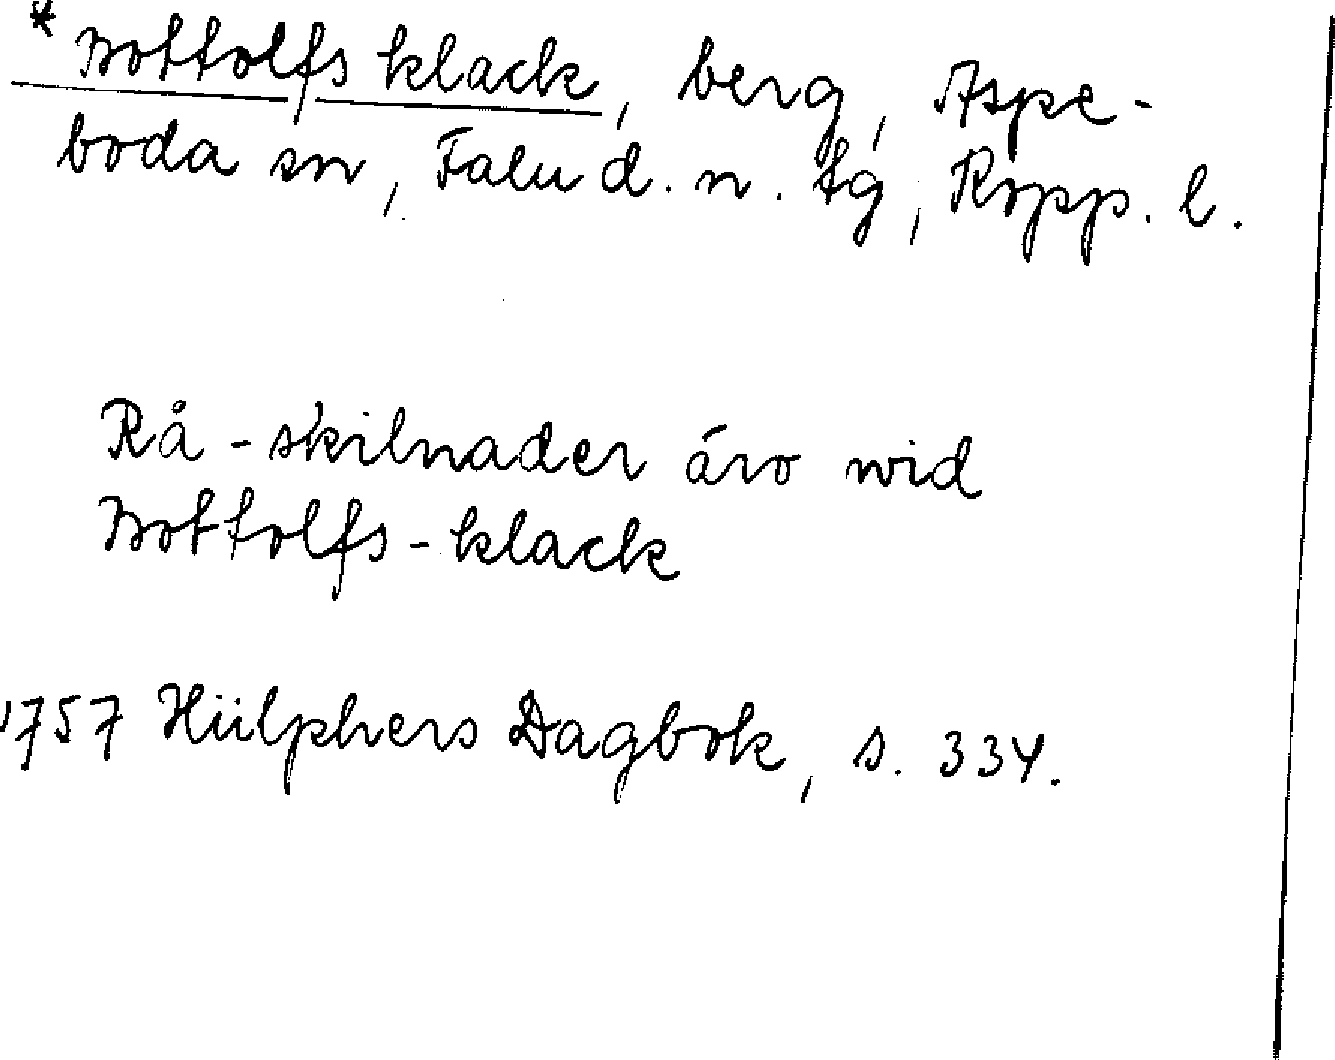 * Bottolfs klack, berg, Aspe-
boda sn, Falu d. n. tg, Kopp. l.
Rå-skilnader äro wid
Bottolfs-klack
1757 Hülphers Dagbok, s. 334.